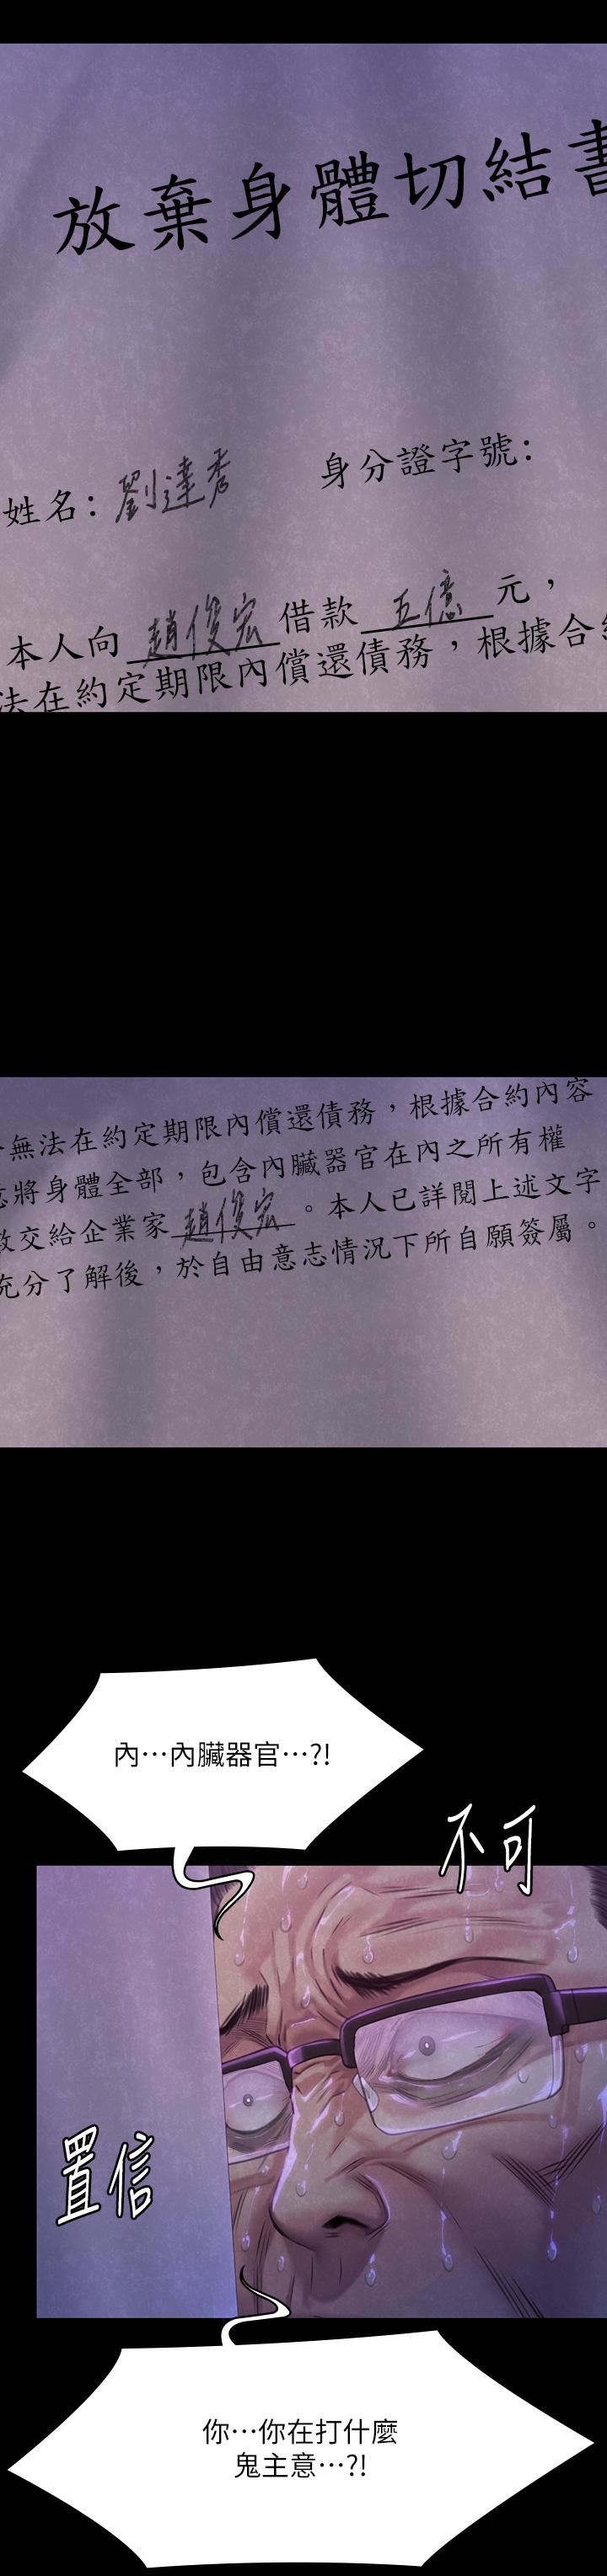 放棄身體切結書
姓名：劉達秀 身分證字號：
本人向趙俊宏借款五億元，
法在約定期限內償還債務，根據合約
無法在約定期限內償還債務，根據合約內容
志將身體全部，包含內臟器官在內之所有權
繳交給企業家趙俊宏。本人已詳閱上述文字
充分了解後，於自由意志情況下所自願簽屬。
內…內臟器官…?!
不可
置信
你…你在打什麼
鬼主意…?!